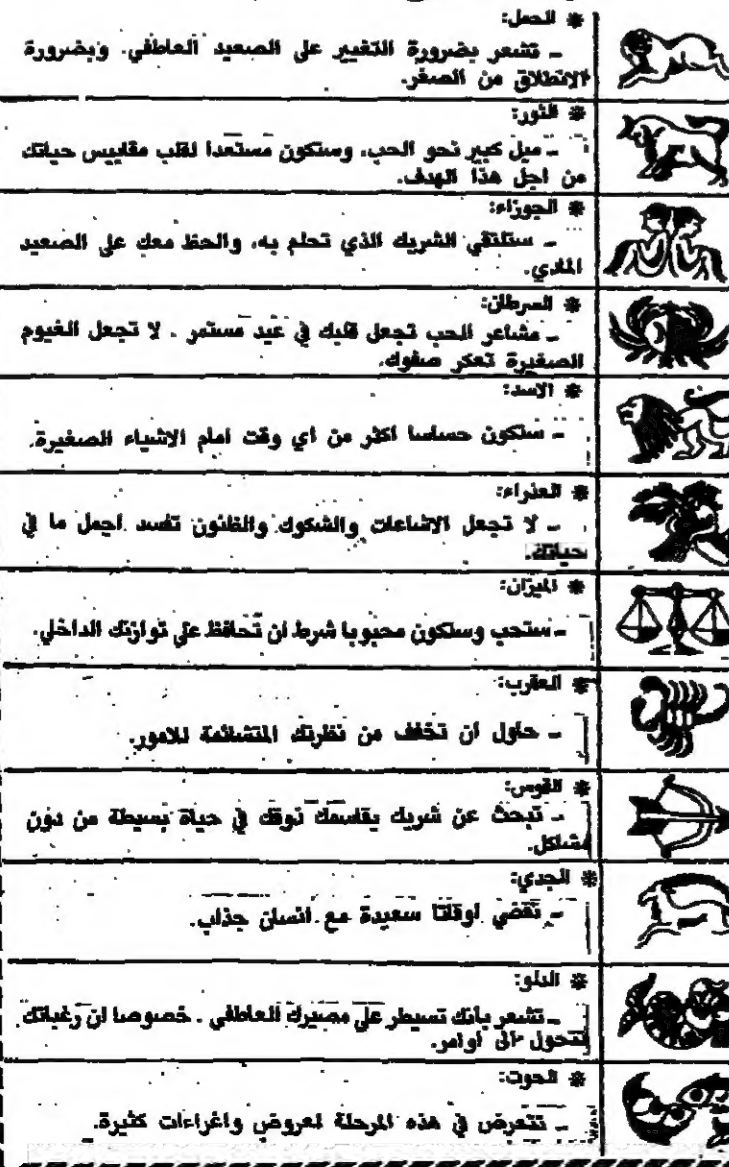 * الحمل:
ـ تشعر بضرورة التغيير على الصعيد العاطفي. وبضرورة
الانطلاق من الصفر.
* الثور:
ـ ميل كبير نحو الحب، وستكون مستعدا لقلب مقاييس حياتك
من اجل هذا الهدف.
* الجوزاء:
ـ ستلتقي الشريك الذي تحلم به، والحظ معك على الصعيد
المادي.
* السرطان:
ـ مشاعر الحب تجعل قلبك في عيد مستمر . لا تجعل الغيوم
الصغيرة تعكر صفوك.
* الاسد:
ـ ستكون حساسا اكثر من اي وقت امام الاشياء الصغيرة.
* العذراء:
ـ لا تجعل الاشاعات والشكوك والظنون تفسد اجمل ما في
حياتك.
* الميزان:
ـ ستحب وستكون محبوبا شرط ان تحافظ على توازنك الداخلي.
* العقرب:
ـ حاول ان تخفف من نظرتك المتشائمة للامور.
* القوس:
ـ تبحث عن شريك يقاسمك ذوقك في حياة بسيطة من دون
مشاكل.
* الجدي:
ـ تقضي اوقاتا سعيدة مع انسان جذاب.
* الدلو:
ـ تشعر بانك تسيطر على مصيرك العاطفي . خصوصا ان رغباتك
تتحول الى اوامر.
* الحوت:
ـ تتعرض في هذه المرحلة لعروض واغراءات كثيرة.